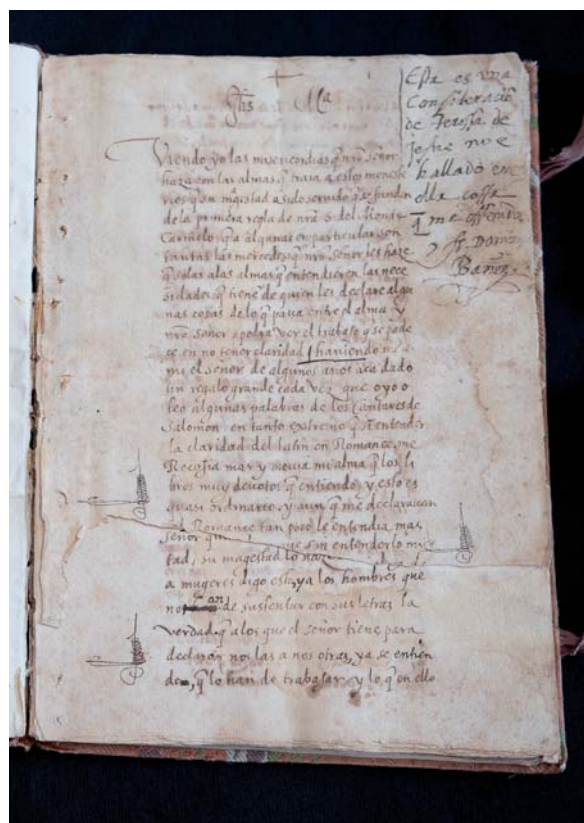 Jhs Mª
Viendo yo las misericordias q̃ nrõ señor
haze con las almas q̃ traia a estos moneste
rios q̃ su magestad a sido servido q̃ se funden
de la primera regla de nrã sª del Monte
Carmelo, q̃ a algunas en particular son
tantas las mercedes q̃ nrõ señor les haze
q̃ solas a las almas q̃ entendieren las nece
sidades q̃ tiene de quien les declare algu
nas cosas de lo q̃ passa entre el alma y
nrõ señor, podra ver el trabajo q̃ se pade
ce en no tener claridad haviendo me a
mi el señor de algunos años aca dado
un regalo grande cada vez que oyo o
leo algunas palabras de los Cantares de
Salomon en tanto extremo q̃ sin entender
la claridad del latin en Romance me
Recogia mas y movia mi alma q̃ los li
bros muy devotos q̃ entiendo y esto es
quasi ordinario, y aun q̃ me declaravan
el Romance tan poco le entendia mas,
señor que sin entenderlo mi
tad, su magestad lo
a mugeres digo esto, ya los hombres que
no an de sustentar con sus letras la
verdad. q̃ a los que el señor tiene para
declarar nos las a nosotras, ya se entien
de, q̃ lo han de trabajar, y lo q̃ en ello
Esta es una
Consideracio
de Teressa de
Jesus no e
hallado en
ella cossa
q̃ me offenda
fr. Domº
Bañez